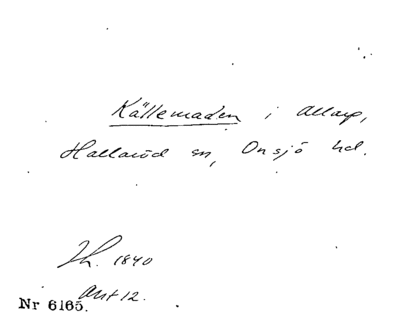 Källemaden i Allarp,
Hallaröd sn, Onsjö hd.
Th. 1840
Ant 12.
Nr 6165.